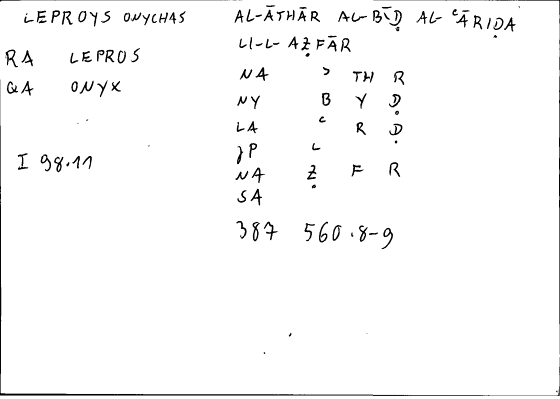 LEPROYS ONYCHAS
RA LEPROS
QA ONYX
I 98.11
AL-ĀTHĀR AL-BĪḌ AL-ʿĀRIḌA
LI-L-AẒFĀR
NA ʾ TH R
NY B Y Ḍ
LA ʿ R Ḍ
JP L
NA Ẓ F R
SA
387 560.8-9